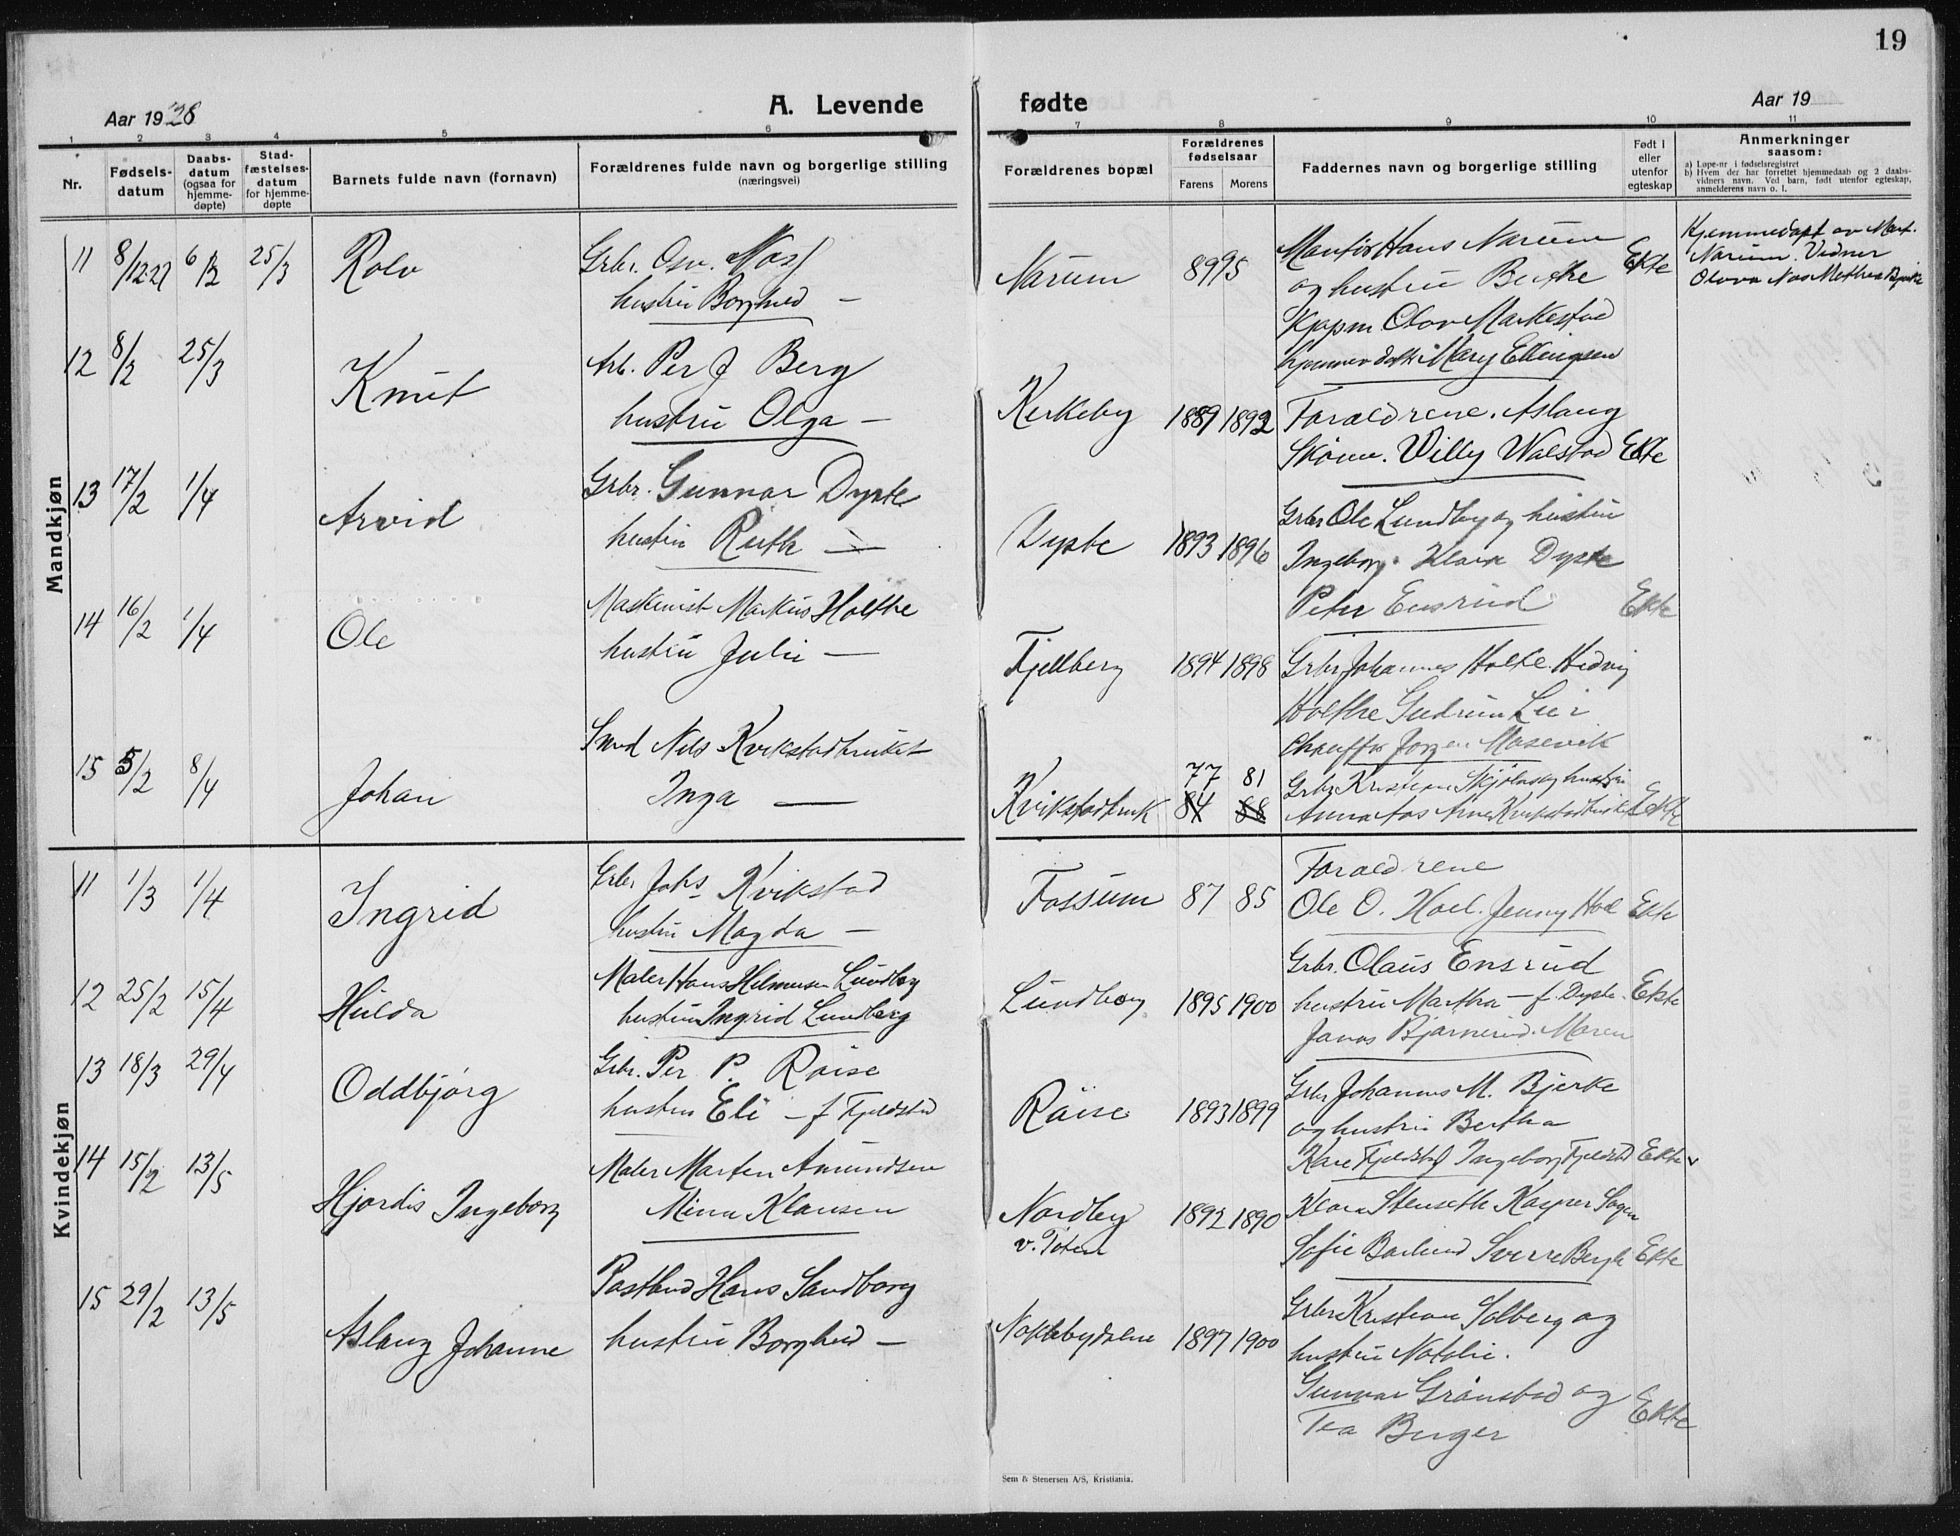 19
Aar 1928
A. Levende
fødte
Aar 19
1 2 3 4 5 6 7 8 9 10 11
Nr.
Fødsels-
datum
Daabs-
datum
(ogsaa for
hjemme-
døpte)
Stad-
fæstelses-
datum
for hjemme-
døpte
Barnets fulde navn (fornavn)
Forældrenes fulde navn og borgerlige stilling
(næringsvei)
Forældrenes bopæl
Forældrenes
fødselsaar
Farens Morens
Faddernes navn og borgerlige stilling
Født i
eller
utenfor
egteskap
Anmerkninger
saasom:
a) Løpe-nr i fødselsregistret
b) Hvem der har forrettet hjemmedaab og 2 daabs-
vidners navn. Ved barn, født utenfor egteskap,
anmelderens navn o. l.
Mandkjøn
11 8/12 27 25/3 Rolv
Grbr. Osv. Nos
hustru Borghild —
Narum 89 95
Hans Narum
og hustru Berthe
Kjøpm Olav Markestad
Mary Ellingsen
Ekte
Hjemmedøpt av Mart.
Narum. Vidner
Olova Nos Mathea
12 8/2 25/3 Knut
Arb. Per J Berg
hustru Olga —
Kirkeby 1889 1892
Forældrene. Aslaug
Willy Walstad Ekte
13 17/2 1/4 Arvid
Grbr. Gunnar Dyste
hustru Ruth —
Dyste 1893 1896
Grbr Ole Lundby og hustru
Ingeborg. Klara Dyste
Peter Ensrud Ekte
14 16/2 1/4 Ole
Maskinist Markus Holthe
hustru Julie —
Fjellberg 1894 1898
Grbr Johannes Holthe. Hedvig
Holthe Gudrun Lier
Chauffør Jørgen Masevik
15 5/2 8/4 Johan
Smed Nils Kvikstadbruket
Inga —
Kvikstadbruk 77 81
84 88
Grbr Kristian Skjølaas og hustru
Anna Aas Arne Kvikstadbruket Ekte
Kvindekjøn
11 1/3 1/4 Ingrid
Grbr Johs Kvikstad
hustru Magda —
Fossum 87 85
Forældrene
Ole O. Hoel. Jenny Hoel Ekte
12 25/2 15/4 Hilda
Maler Hans Helmersen Lundberg
hustru Ingrid Lundberg
Lundberg 1895 1900
Grbr. Olaus Ensrud
hustru Martha — f. Dyste. Ekte
Jonas Bjørnerud. Maren
13 18/3 29/4 Oddbjørg
Grbr. Per P. Røise
hustru Eli — f Fjeldstad
Røise 1893 1899
Grbr Johannes M. Bjerke
og hustru Bertha
Kare Fjeldstad Ingeborg Fjeldstad Ekte
14 15/2 13/5 Hjordis Ingeborg
Maler Marten Amundsen
Mina Klausen
Nordby
v. Toten
1892 1890
Klara Stenseth Kasper Sogn
Sofie Sverre Bergh Ekte
15 29/2 13/5 Aslaug Johanne
Postbud Hans Sandborg
hustru Borghild —
Nøklebydalen 1897 1900
Grbr Kristian Solberg og
hustru Natalie.
Gunvor Grønstad og
Tea Berger
Ekte
Sem & Stenersen A/S, Kristiania.